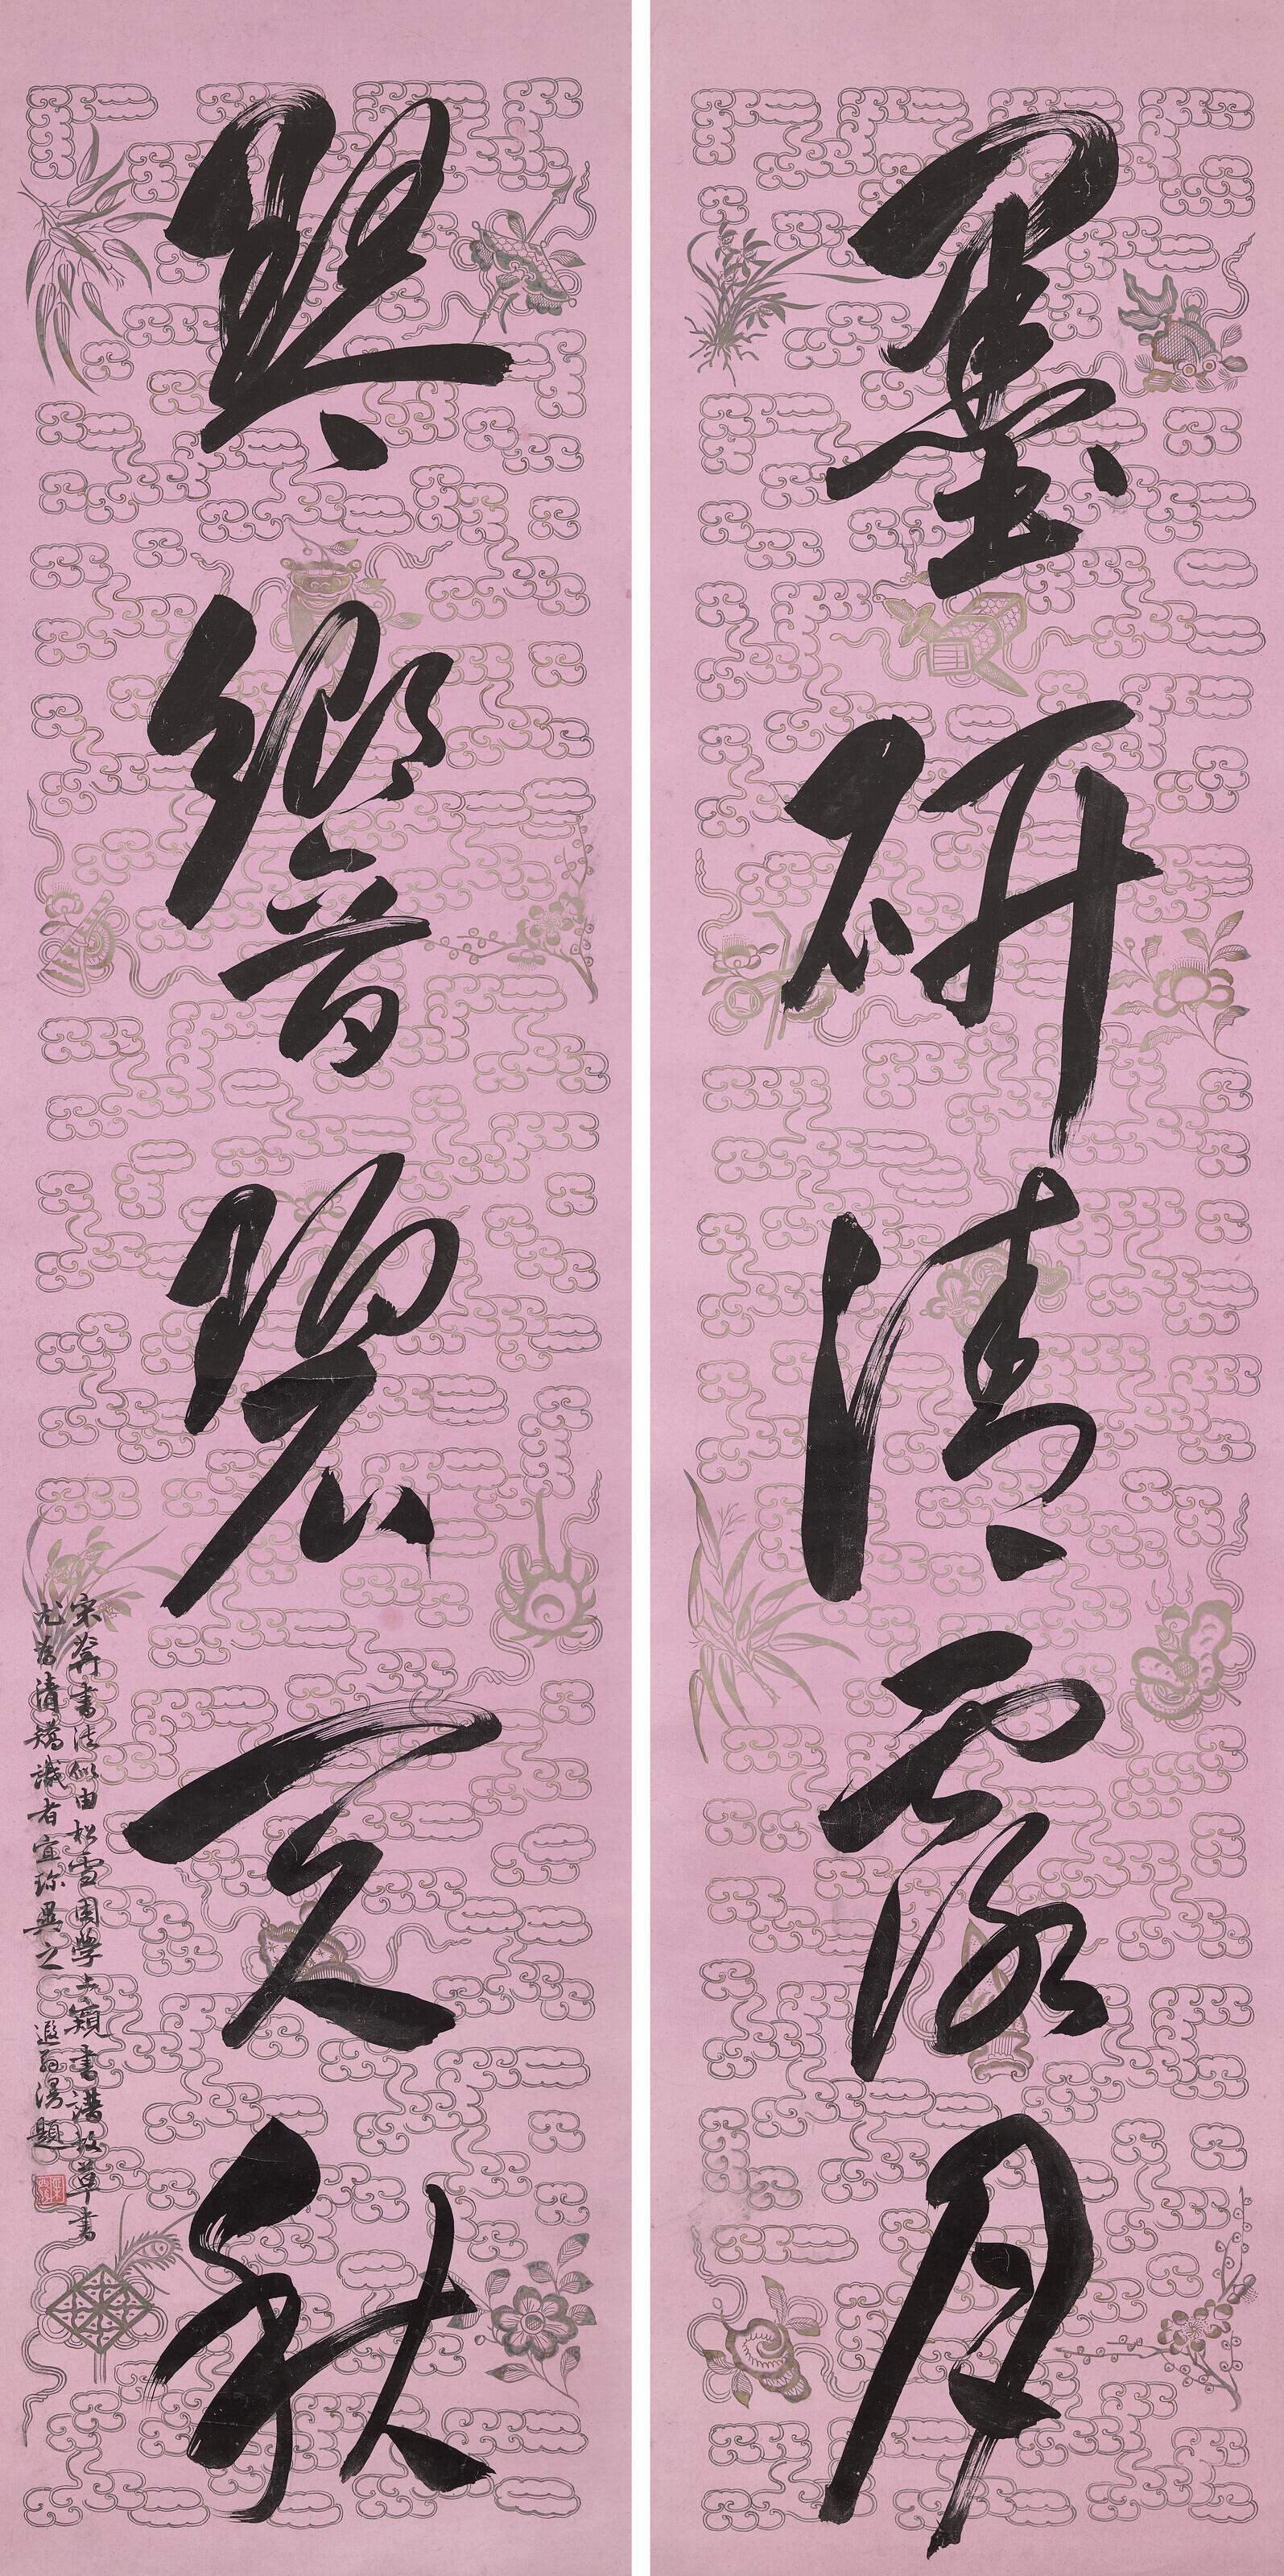 墨研清露月
琴響碧天秋
宋書法似由松雪學上書譜故草書
尤為清矯識者宜珍異之 翁湯題